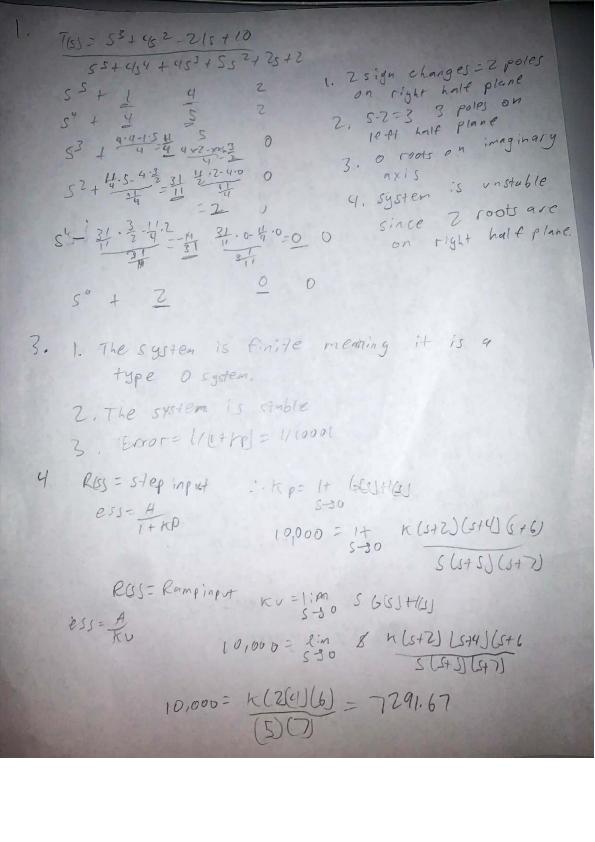 1. T(s) = s³ + 4s² - 21s + 10
s⁵ + 4s⁴ + 4s³ + 5s² + 2s + 2
s⁵ + 1 4 2
s⁴ + 4 5 2
s³ + 4·4-1·5 / 4 = 11/4 4×2- / 4 = 3/2 0
s² + 11/4·5-4·3/2 / 11/4 = 31/11 11/4·2-4·0 / 11/4 = 2 0
s¹ - 31/11·3/2-11/4·2 / 31/11 = -11/31 31/11·0-11/4·0 / 31/11 = 0 0
s⁰ + 2 0 0
1. 2 sign changes = 2 poles
on right half plane
2. 5-2=3 3 poles on
left half plane
3. 0 roots on imaginary
axis
4. system is unstable
since 2 roots are
on right half plane.
3. 1. The system is finite meaning it is a
type 0 system.
2. The system is stable
3. Error = 1/(1+Kp) = 1/10001
4 R(s) = step input ∴ Kp = lt s→0 G(s)H(s)
ess = A / 1+KP
10,000 = lt s→0 K(s+2)(s+4)(s+6) / s(s+5)(s+7)
R(s) = Ramp input Kv = lim s→0 s G(s)H(s)
ess = A / Kv
10,000 = lim s→0 s K(s+2)(s+4)(s+6 / s(s+5)(s+7)
10,000 = K(2)(4)(6) / (5)(7) = 7291.67